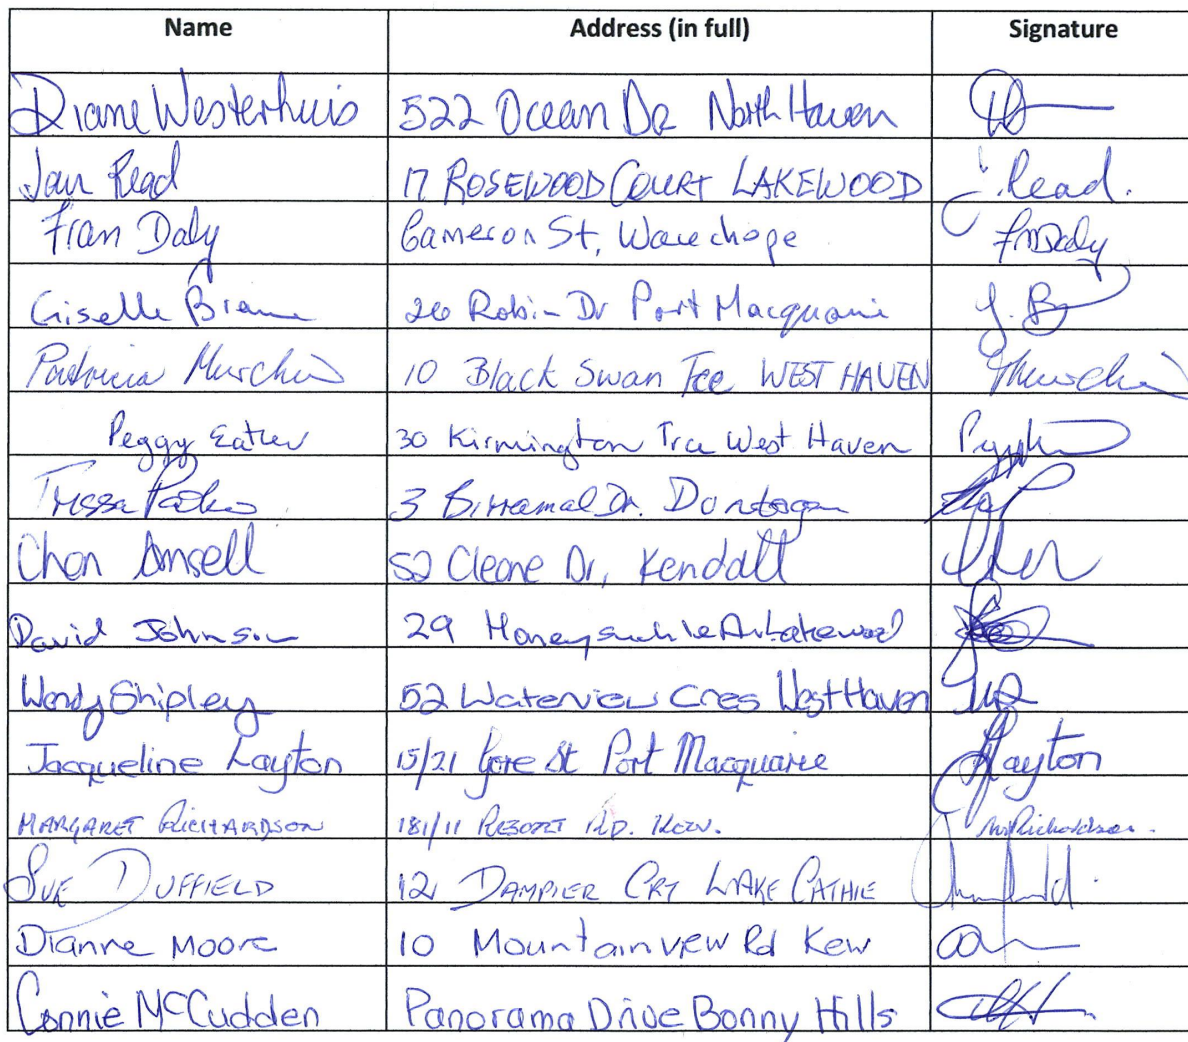 Name Address (in full) Signature
Diane Westerhuis 522 Ocean Dr North Haven
Jan Read 17 ROSEWOOD COURT LAKEWOOD J. Read.
Fran Daly Cameron St, Wauchope FMDaly
Giselle 26 Robin Dr Port Macquarie G. B
Patricia Murchie 10 Black Swan Tce WEST HAVEN PMurchie
Peggy Eather 30 Kirmington Tce West Haven
Tressa 3 Birramal Dr. Dondogan
Chon Ansell 52 Cleone Dr, Kendall
David Johnson 29 Honeysuckle Av Lakewood
Wendy Shipley 52 Waterview Cres West Haven
Jacqueline Layton 15/21 Gore St Port Macquarie JLayton
MARGARET RICHARDSON 181/11 RESORT RD. KEW. M Richardson.
SUE DUFFIELD 12 DAMPIER CRT LAKE CATHIE
Dianne Moore 10 Mountainvew Rd Kew
Connie McCudden Panorama Drive Bonny Hills